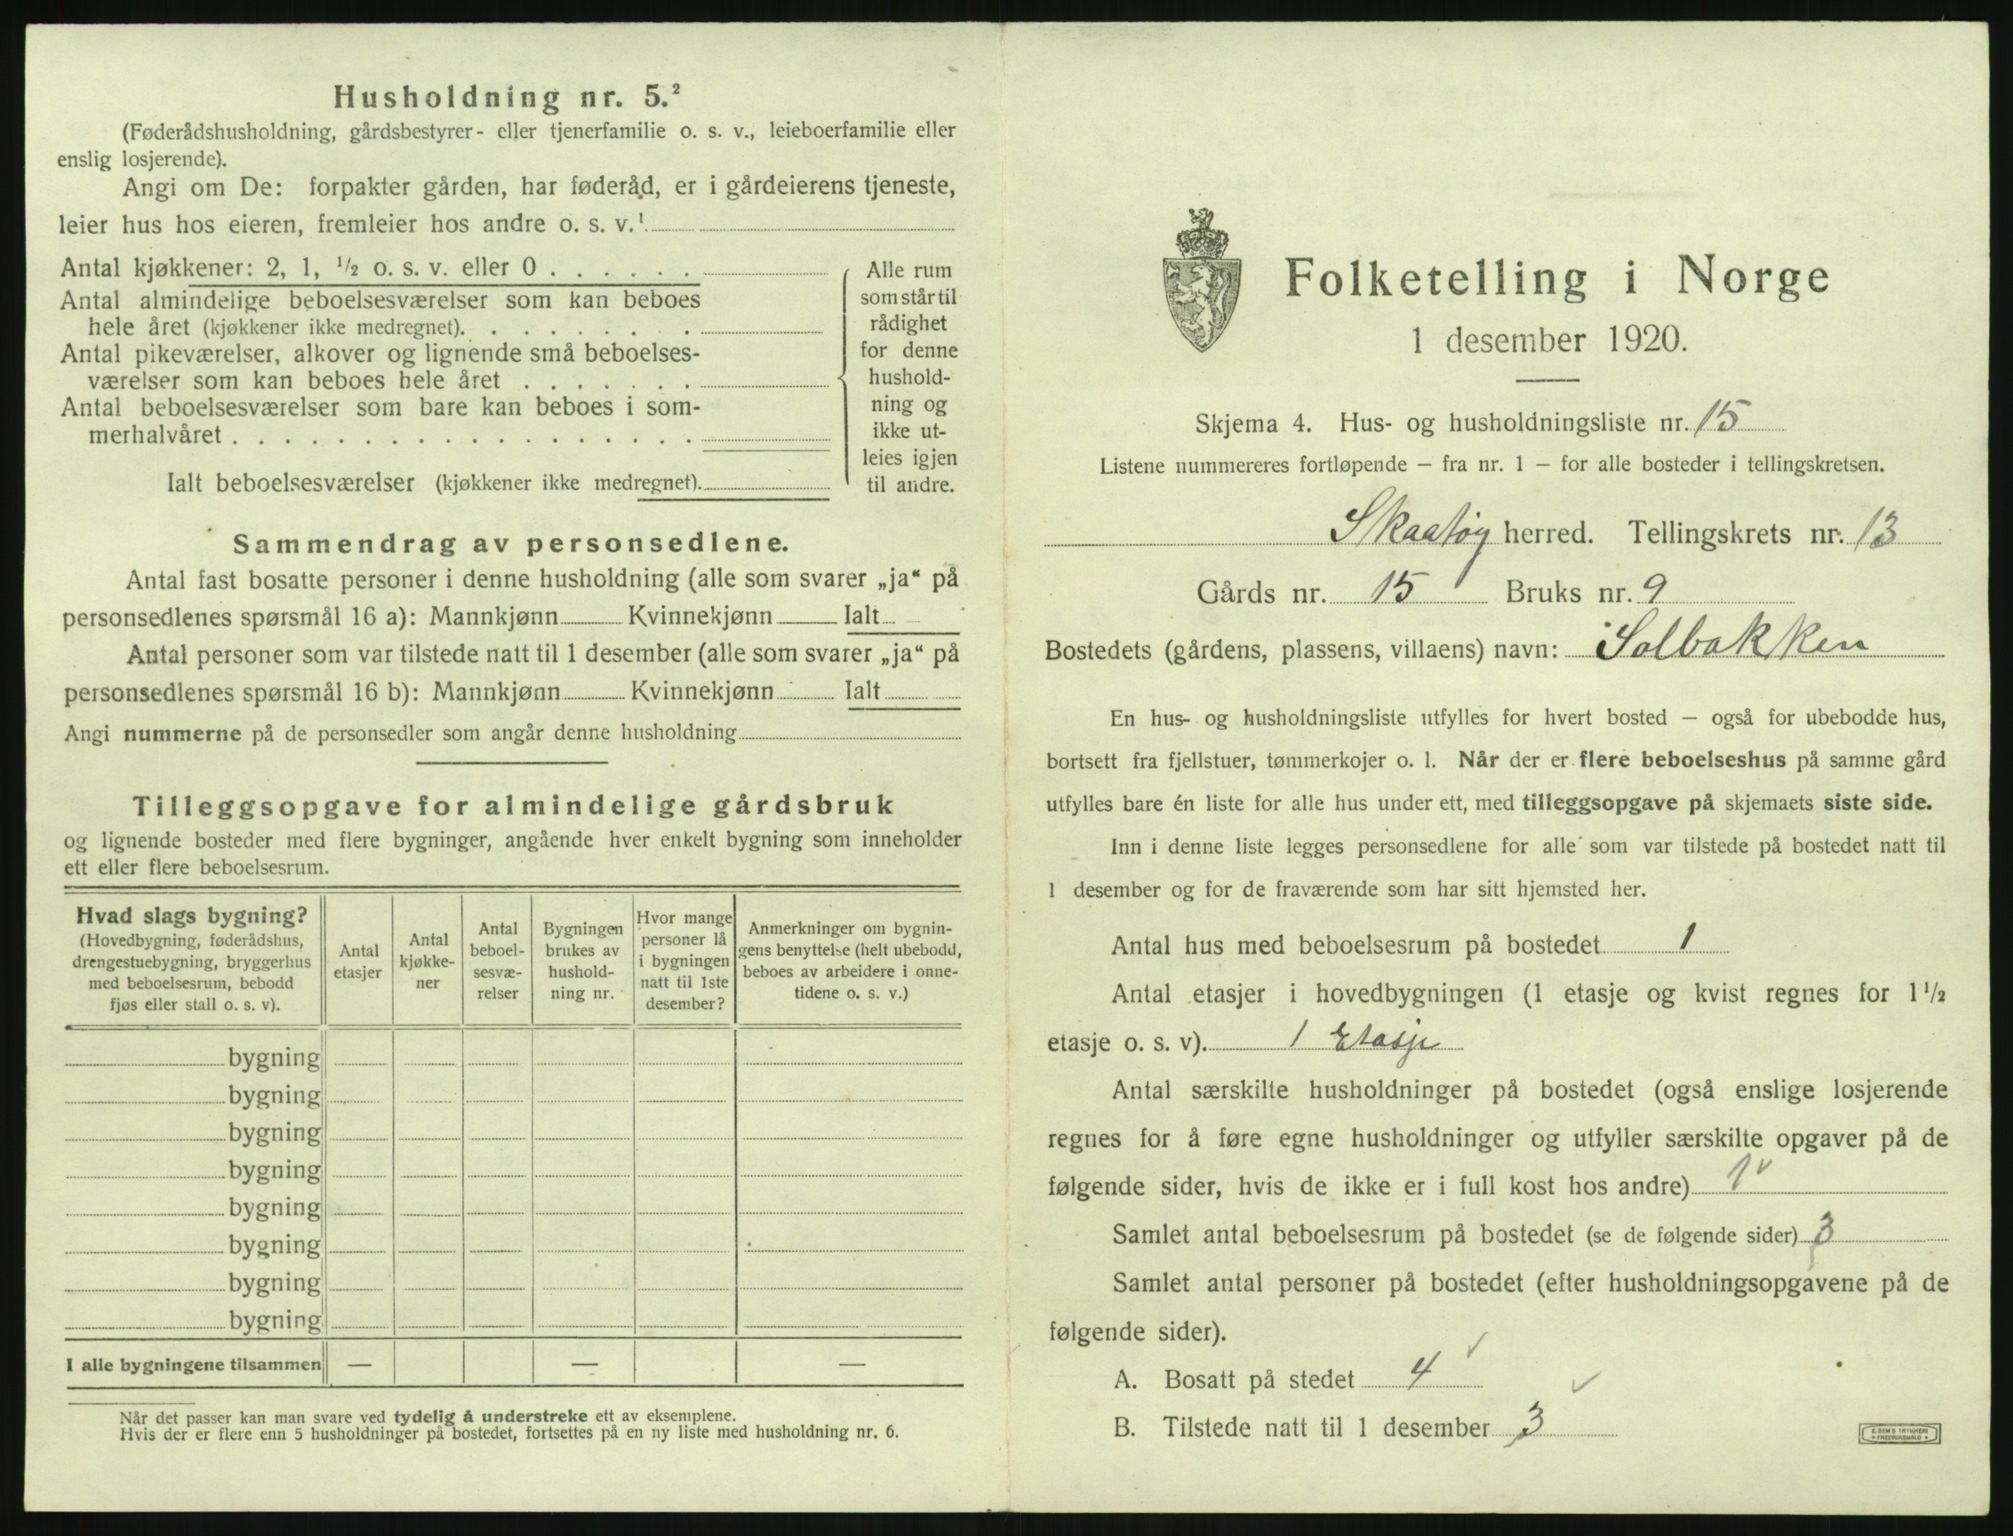 Husholdning nr. 5.²
(Føderådshusholdning, gårdsbestyrer- eller tjenerfamilie o. s. v., leieboerfamilie eller
enslig losjerende).
Angi om De: forpakter gården, har føderåd, er i gårdeierens tjeneste,
leier hus hos eieren, fremleier hos andre o. s. v.¹
Antal kjøkkener: 2, 1, ½ o. s. v. eller 0 . . . . . .
Antal almindelige beboelsesværelser som kan beboes
hele året (kjøkkener ikke medregnet). . . . . . . . .
Antal pikeværelser, alkover og lignende små beboelses-
værelser som kan beboes hele året . . . . . . .
Antal beboelsesværelser som bare kan beboes i som-
merhalvåret . . . . . . . . . . . . . . . . . .
Ialt beboelsesværelser (kjøkkener ikke medregnet).
Alle rum
som står til
rådighet
for denne
hushold-
ning og
ikke ut-
leies igjen
til andre.
Sammendrag av personsedlene.
Antal fast bosatte personer i denne husholdning (alle som svarer „ja“ på
personsedlenes spørsmål 16 a): Mannkjønn Kvinnekjønn Ialt
Antal personer som var tilstede natt til 1 desember (alle som svarer „ja“ på
personsedlenes spørsmål 16 b): Mannkjønn Kvinnekjønn Ialt
Angi nummerne på de personsedler som angår denne husholdning
Tilleggsopgave for almindelige gårdsbruk
og lignende bosteder med flere bygninger, angående hver enkelt bygning som inneholder
ett eller flere beboelsesrum.
Hvad slags bygning?
(Hovedbygning, føderådshus,
drengestuebygning, bryggerhus
med beboelsesrum, bebodd
fjøs eller stall o. s. v).
Antal
etasjer
Antal
kjøkke-
ner
Antal
beboel-
sesvæ-
relser
Bygningen
brukes av
hushold-
ning nr.
Hvor mange
personer lå
i bygningen
natt til 1ste
desember?
Anmerkninger om bygnin-
gens benyttelse (helt ubebodd,
beboes av arbeidere i onne-
tidene o. s. v.)
bygning
bygning
bygning
bygning
bygning
bygning
bygning
bygning
I alle bygningene tilsammen — — —
Når det passer kan man svare ved tydelig å understreke ett av eksemplene.
Hvis der er flere enn 5 husholdninger på bostedet, fortsettes på en ny liste med husholdning nr. 6.
Folketelling i Norge
1 desember 1920.
Skjema 4. Hus- og husholdningsliste nr. 15
Listene nummereres fortløpende – fra nr. 1 – for alle bosteder i tellingskretsen.
Skaatøy herred. Tellingskrets nr. 13
Gårds nr. 15 Bruks nr. 9
Bostedets (gårdens, plassens, villaens) navn: Solbakken
En hus- og husholdningsliste utfylles for hvert bosted – også for ubebodde hus,
bortsett fra fjellstuer, tømmerkojer o. l. Når der er flere beboelseshus på samme gård
utfylles bare én liste for alle hus under ett, med tilleggsopgave på skjemaets siste side.
Inn i denne liste legges personsedlene for alle som var tilstede på bostedet natt til
1 desember og for de fraværende som har sitt hjemsted her.
Antal hus med beboelsesrum på bostedet 1
Antal etasjer i hovedbygningen (1 etasje og kvist regnes for 1½
etasje o. s. v). 1 Etasje
Antal særskilte husholdninger på bostedet (også enslige losjerende
regnes for å føre egne husholdninger og utfyller særskilte opgaver på de
følgende sider, hvis de ikke er i full kost hos andre) 1 ✓
Samlet antal beboelsesrum på bostedet (se de følgende sider) 3
Samlet antal personer på bostedet (efter husholdningsopgavene på de
følgende sider).
A. Bosatt på stedet 4 ✓
B. Tilstede natt til 1 desember 3 ✓
E. SEM'S TRYKKERI
FREDRIKSHALD